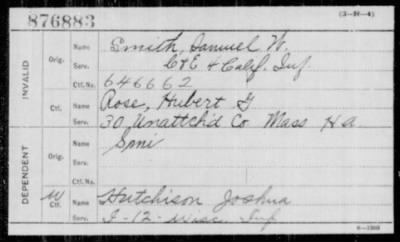 876883 (3-H-4)
INVALID
Orig.
Name Smith, Samuel W.
Serv. C & E 4 Calif. Inf.
Ctf. No. 646662
Ctf.
Name Rose, Hubert G
Serv. 30 Unattch'd Co Mass H A
DEPENDENT
Orig.
Name Smi
Serv.
Ctf. No.
W Ctf.
Name Hutchison Joshua
Serv. I-12-Wisc. Inf